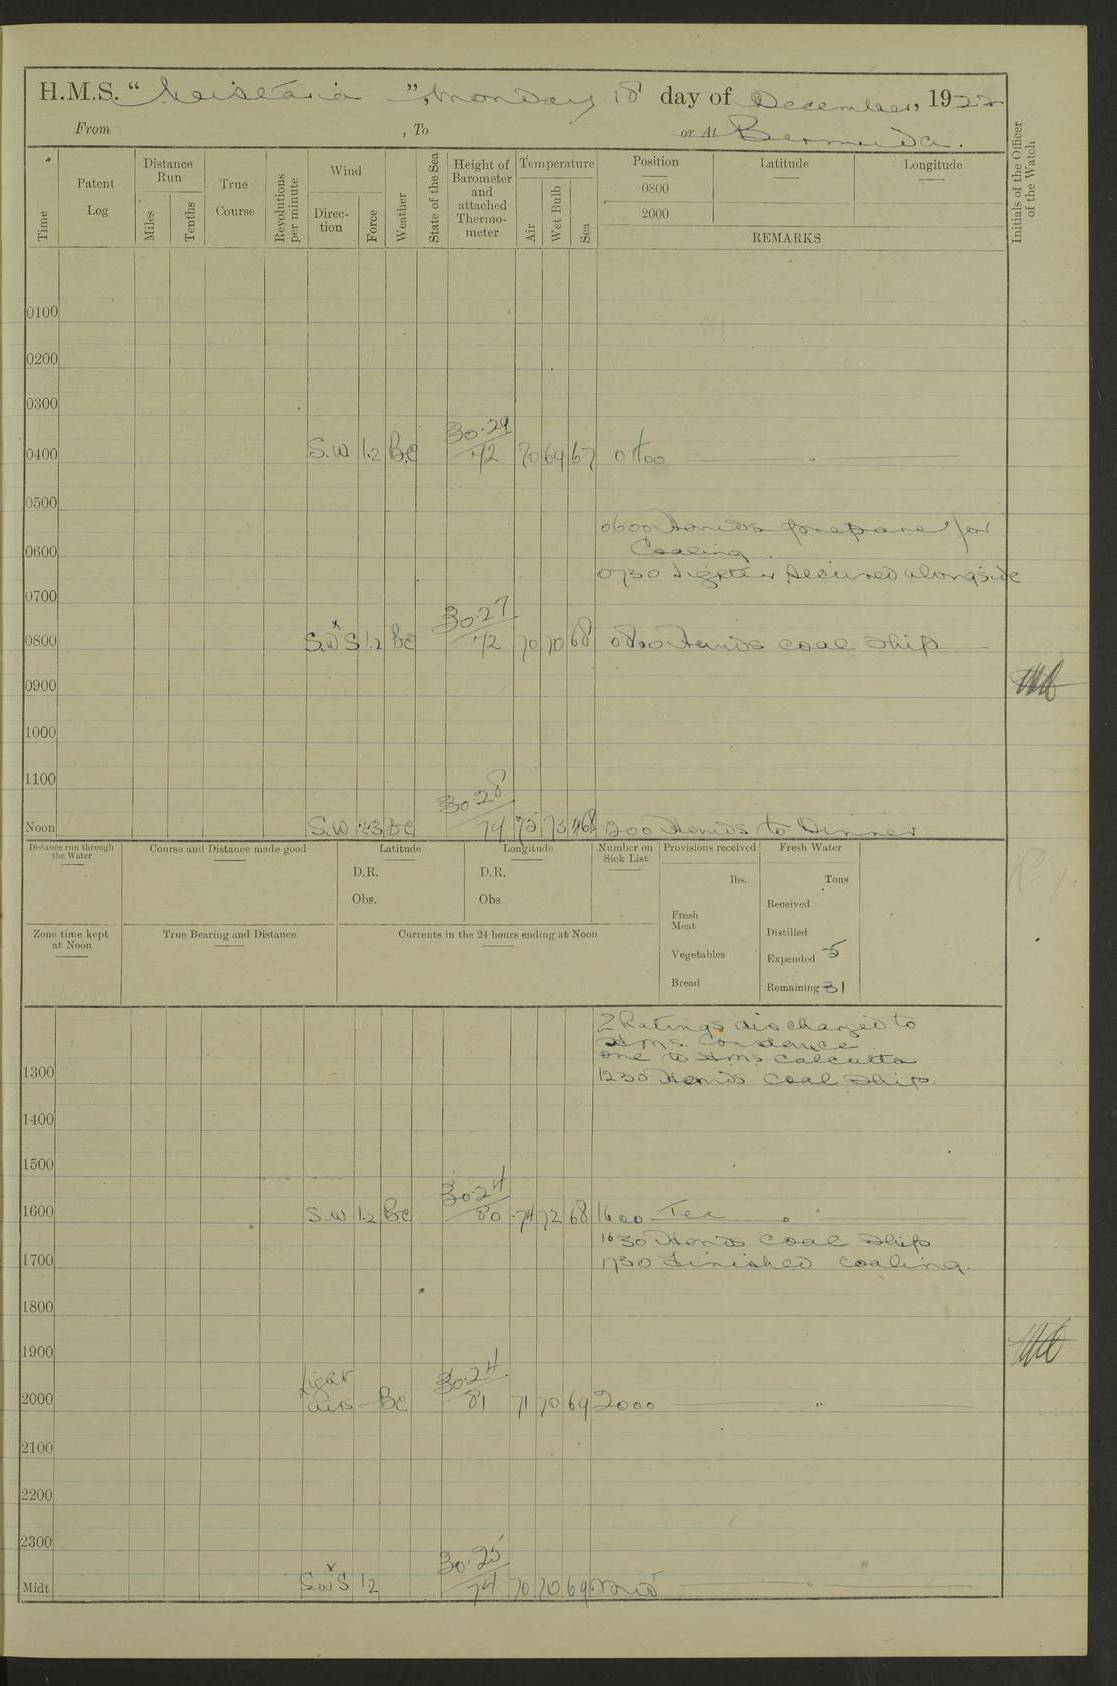 H.M.S. "Wistaria", Monday 18 day of December, 1922
From , To or At Bermuda.
Time
Patent Log
Distance Run
Miles
Tenths
True Course
Revolutions per minute
Wind
Direction
Force
Weather
State of the Sea
Height of Barometer and attached Thermometer
Temperature
Air
Wet Bulb
Sea
Position
0800
2000
Latitude
Longitude
REMARKS
Initials of the Officer of the Watch
0100
0200
0300
0400 S.W 1.2 Bc 30.29/72 70 69 67 0400 "
0500
0600 Hands prepare for
Coaling.
0600
0730 Lighter secured alongside
0700
0800 SWxS 1.2 Bc 30.27/72 70 70 68 0800 Hands coal ship
0900
1000
1100
Noon S.W 2.3 Bc 30.28/74 75 73 68 1200 Hands to Dinner
Distance run through the Water
Course and Distance made good
Latitude
D.R.
Obs.
Longitude
D.R.
Obs
Number on Sick List
Provisions received
lbs.
Fresh Meat
Vegetables
Bread
Fresh Water
Tons
Received
Distilled
Expended 5
Remaining 31
Zone time kept at Noon
True Bearing and Distance
Currents in the 24 hours ending at Noon
2 Ratings discharged to
HMS. Constance
one to HMS Calcutta
1300 1230 Hands coal ship.
1400
1500
1600 S.W 1.2 Bc 30.24/80 74 72 68 1600 Tea "
1630 Hands coal ship
1700 1730 Finished coaling.
1800
1900
2000 Light airs - Bc 30.24/81 71 70 69 2000 "
2100
2200
2300
Midt SWxS 1.2 30.25/74 70 70 69 Mid